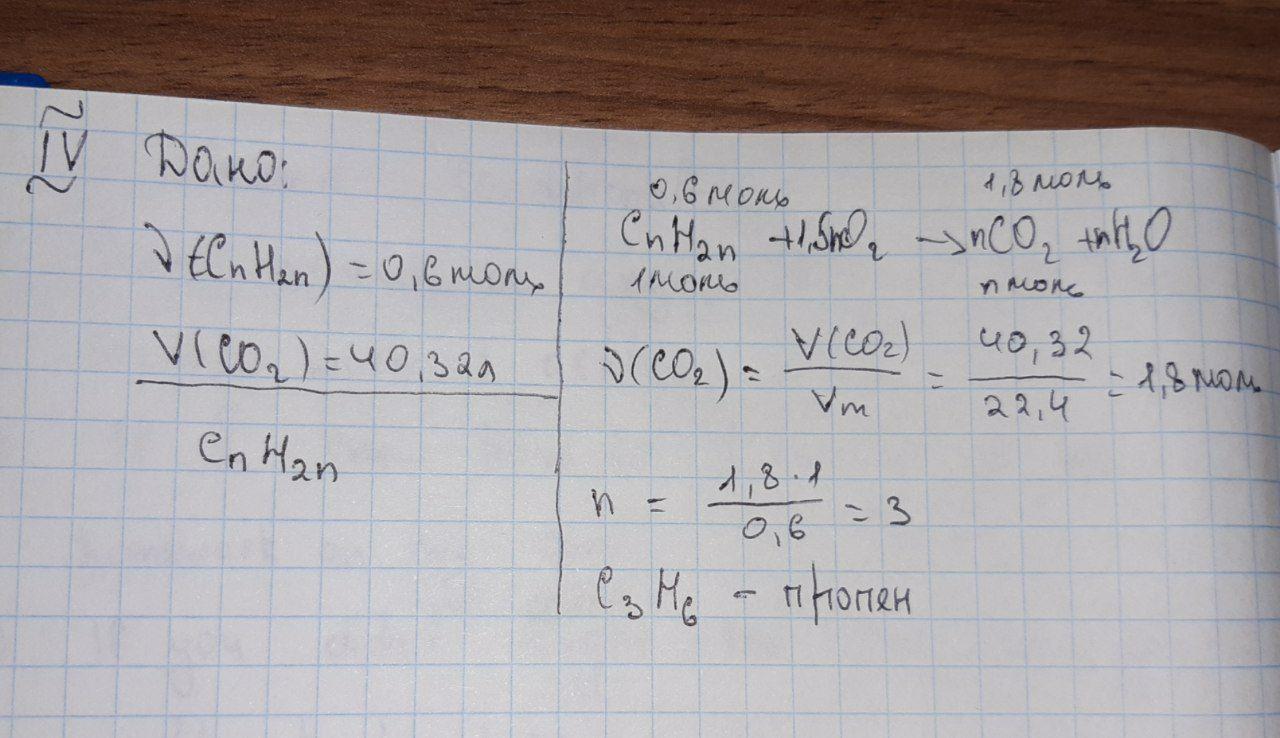 IV Дано:
ν(CnH2n) = 0,6 моль
V(CO2) = 40,32л
CnH2n
0,6 моль 1,8 моль
CnH2n + 1,5nO2 → nCO2 + nH2O
1 моль n моль
ν(CO2) = V(CO2)/Vm = 40,32/22,4 = 1,8 моль
n = 1,8·1/0,6 = 3
C3H6 - пропен